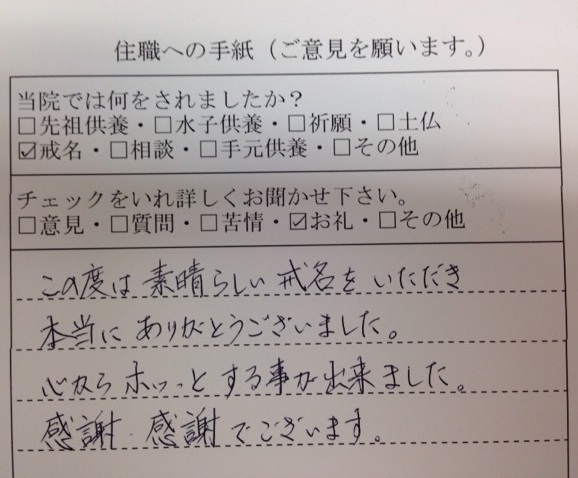 住職への手紙（ご意見を願います。）
当院では何をされましたか？
□先祖供養・□水子供養・□祈願・□土仏
☑戒名・□相談・□手元供養・□その他
チェックをいれ詳しくお聞かせ下さい。
□意見・□質問・□苦情・☑お礼・□その他
この度は素晴らしい戒名をいただき
本当にありがとうございました。
心からホッっとする事が出来ました。
感謝 感謝でございます。